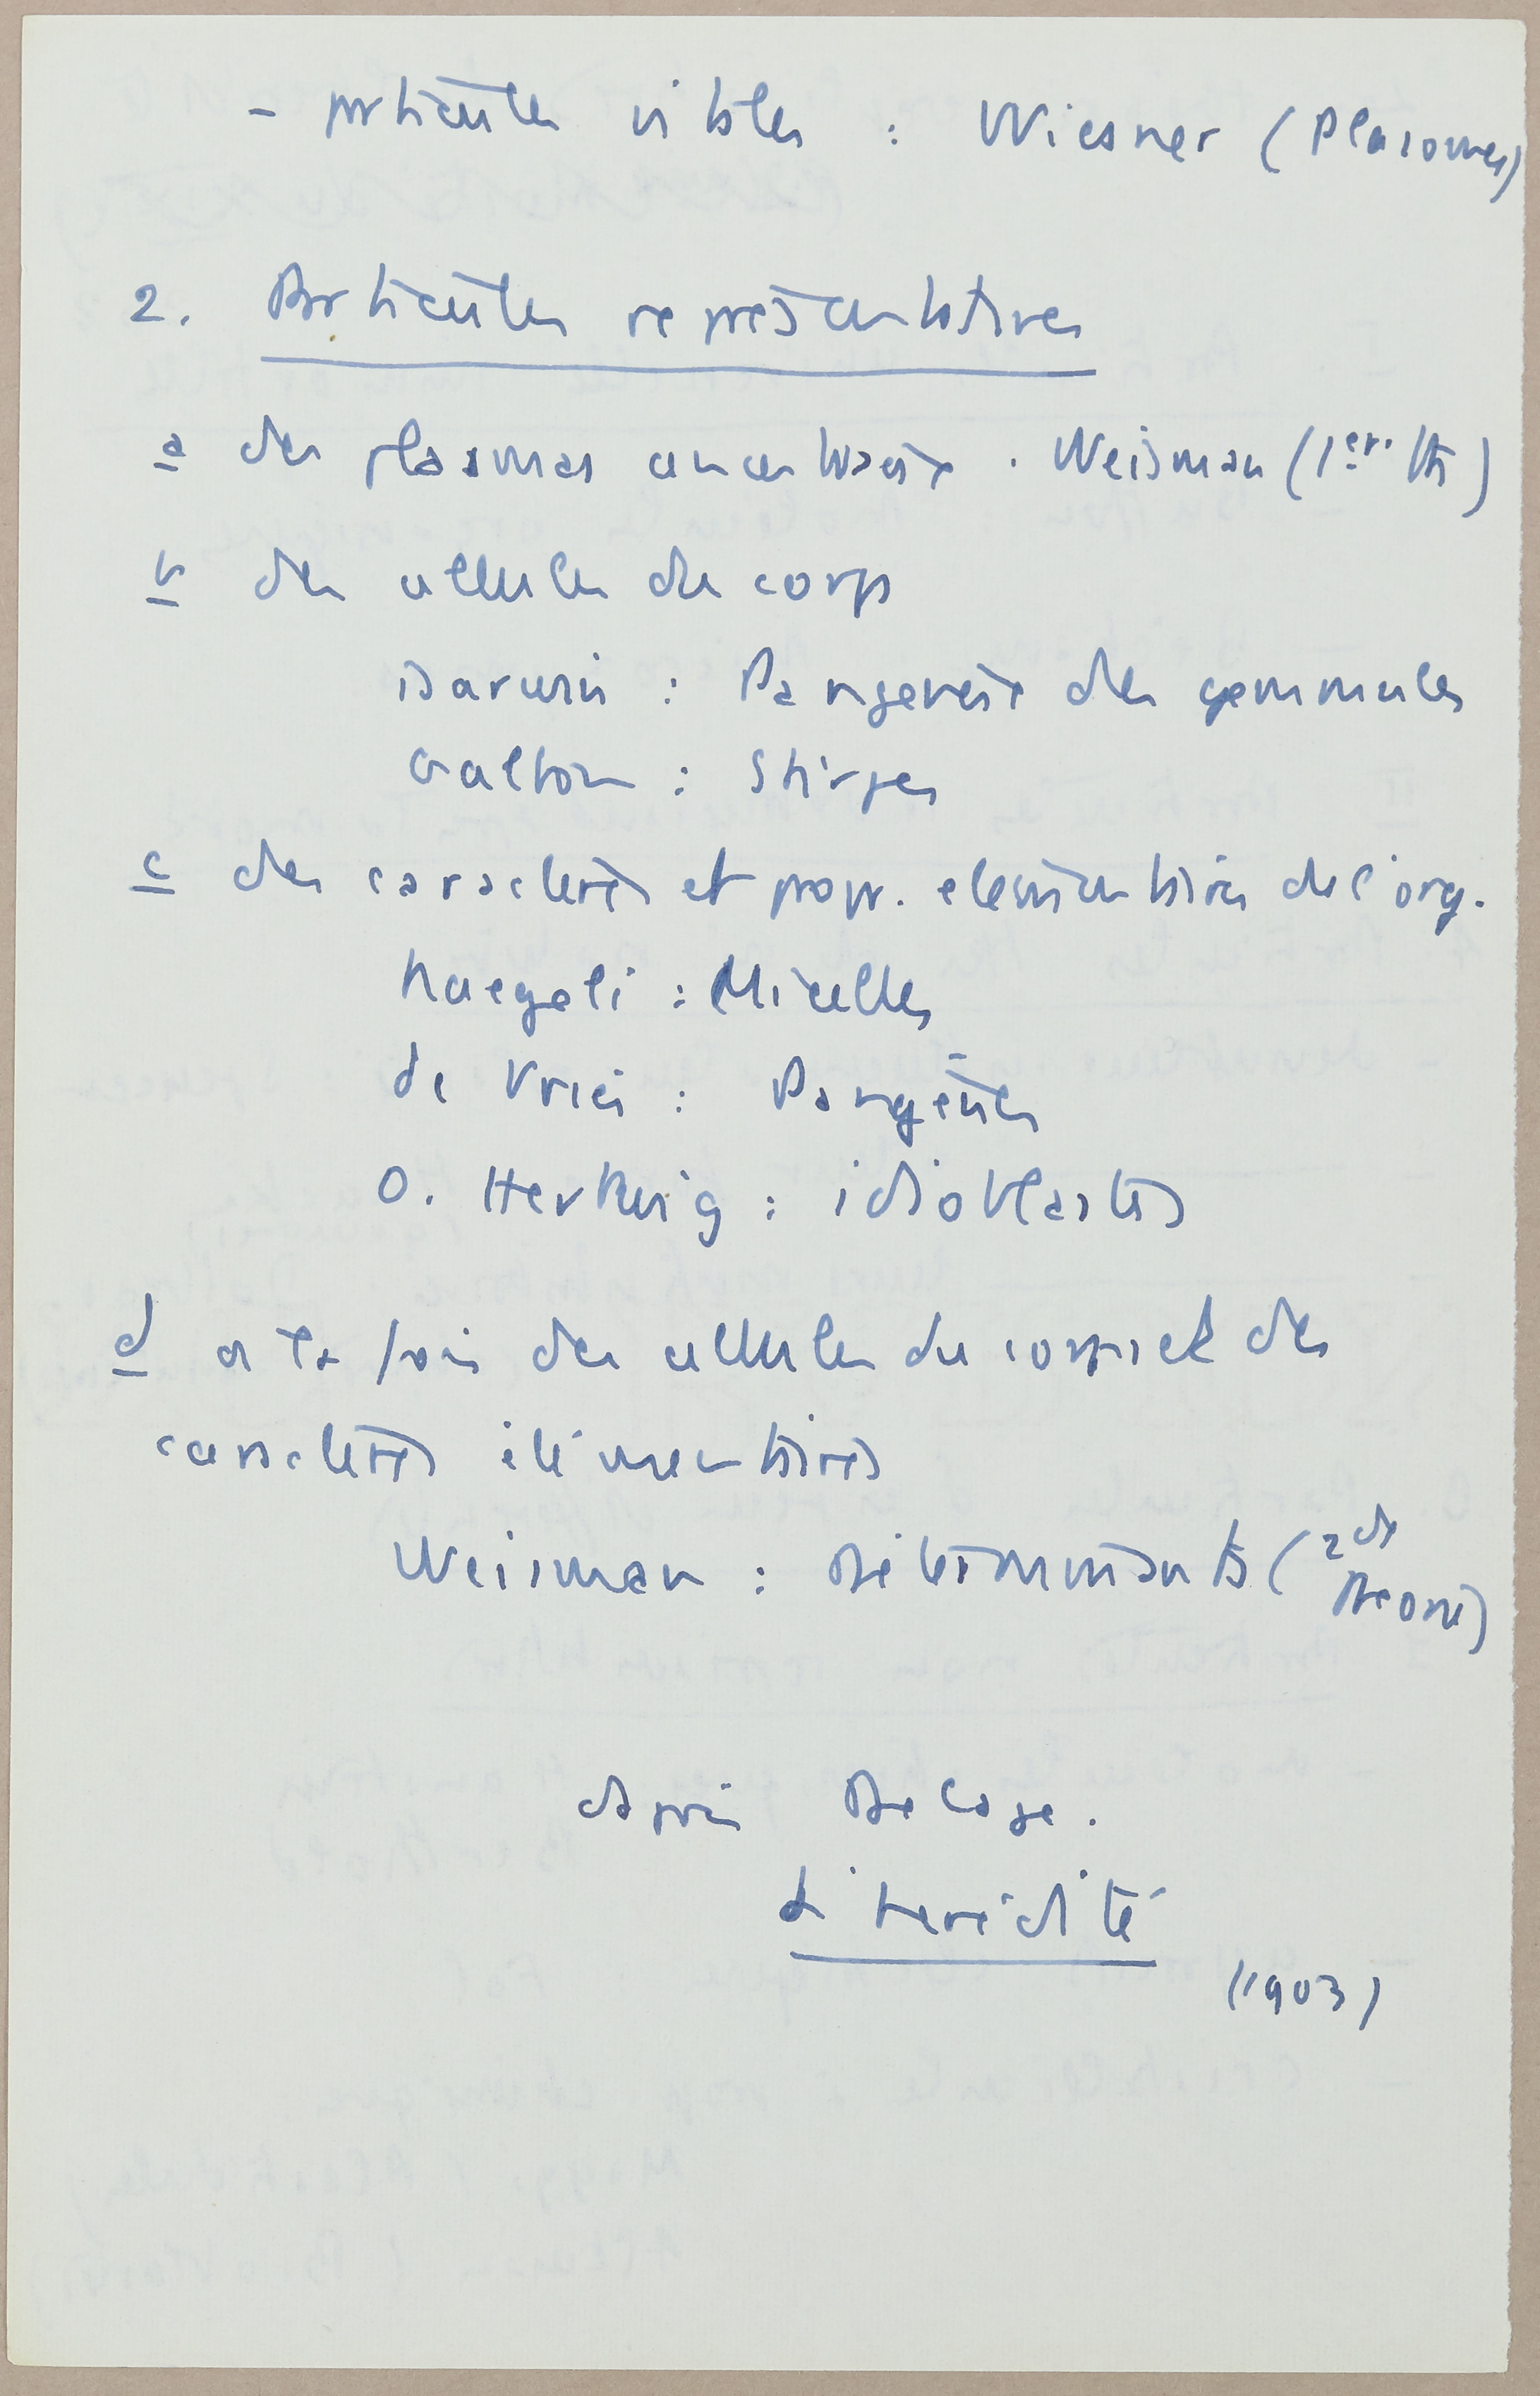 - particules vitales : Wiesner (Plasomes)
2. Particules représentatives
a des plasmas ancestraux . Weisman (1ere th)
b des cellules du corps
Darwin : Pangenèse des gemmules
Galton : Stirpes
c des caractères et propr. elementaires de l'org.
Naegeli : Micelles
de Vries : Pangènes
O. Hertwig : idioblastes
d a la fois des cellules du corps et des
caractères élémentaires
Weisman : Déterminants (2de
theorie)
Après Delage.
L'hérédité
(1903)